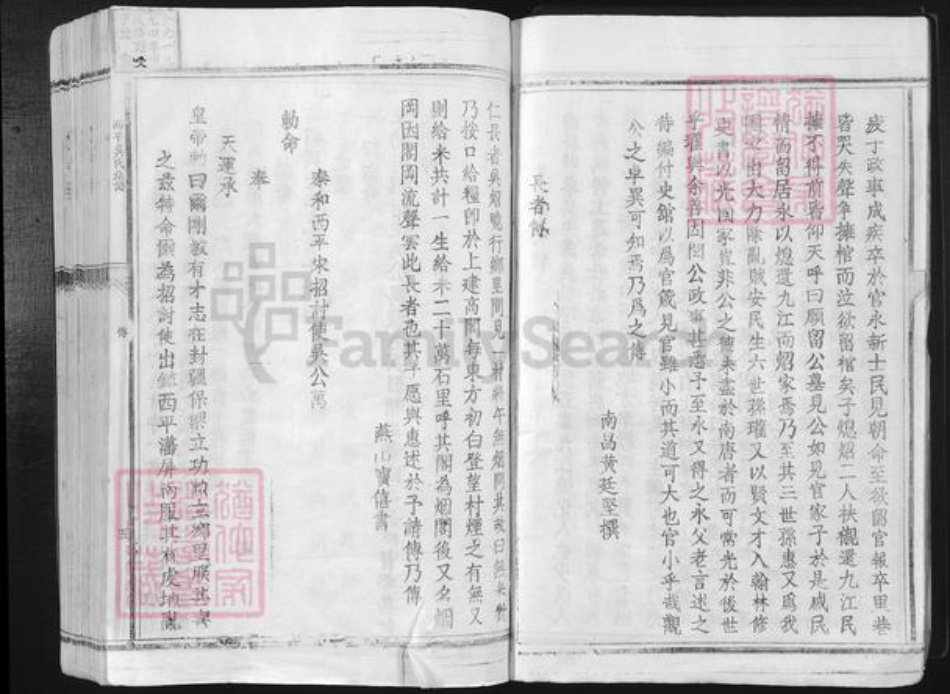 疲丁政事成疾卒於官永新士民見朝命至欲留官報卒里巷
皆哭失聲争擁棺而泣欲留棺矣子熄炤二人扶櫬還九江民
擁不得前皆仰天呼曰願留公墓見公如見官家子於是感民
情而留居永以熄還九江而炤家焉乃至其三世孫惠又為我
國之出大力除亂賊安民生六世孫瓘又以賢文才入翰林修
史書以光國家豈非公之德未盡於南唐者而可當光於後世
乎瓘與余善因閱公政事甚悉予至永又得之永父老言述之
待編付史舘以為官箴見官雖小而其道可大也官小乎哉觀
公之卓異可知焉乃為之傳
南昌黄廷堅撰
長者傳
仁長者吳炤曉行鄉里間見一村將午無烟問其故曰無米
乃按口給糧即於上建高閣每東方初白登望村煙之有無又
則給米共計一生給米二十萬石里呼其閣為烟閣後又名烟
岡因閣岡流聲雲此長者也其子愿與惠述於予請傳乃傳
燕山竇僖書
泰和西平宋招討使吳公萬
勅命
奉
天運承
皇帝勅曰爾剛毅有才志在封疆保梁立功勲立鄉里朕甚
之兹特命爾為招討使出鎮西平藩屏南服其有虎
傳
FamilySearch